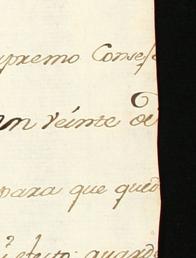 upremo Consej
en veinte di
para que qued
efecto guarde